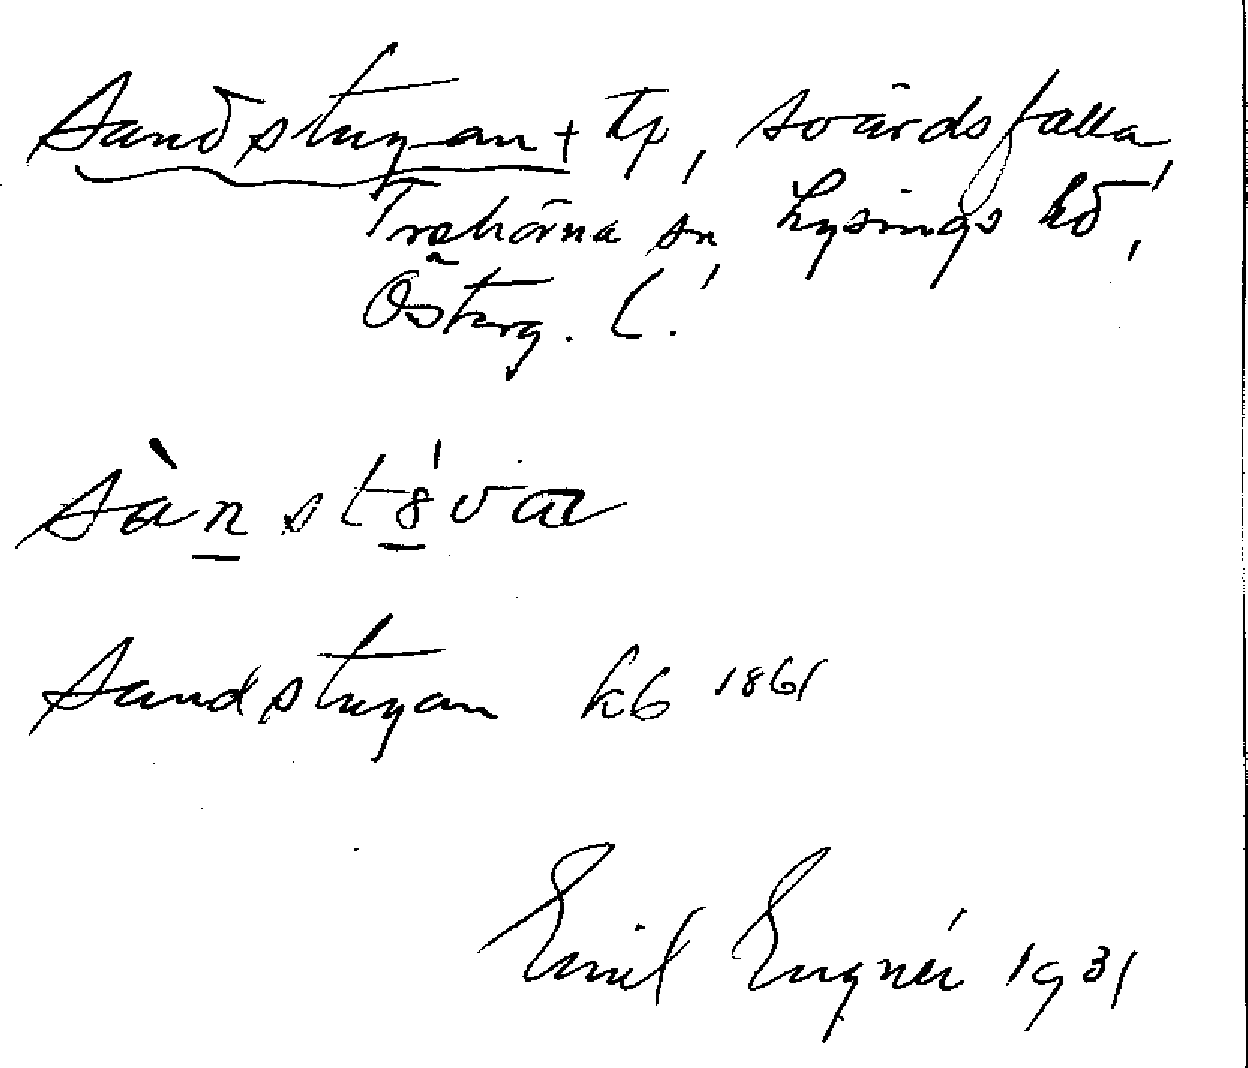 Sandstugan + tp, Svärdsfalla,
Trehörna sn, Lysings hd,
Österg. l.
sàn st8́var
Sandstugan kb 1861
Emil Engnér 1931